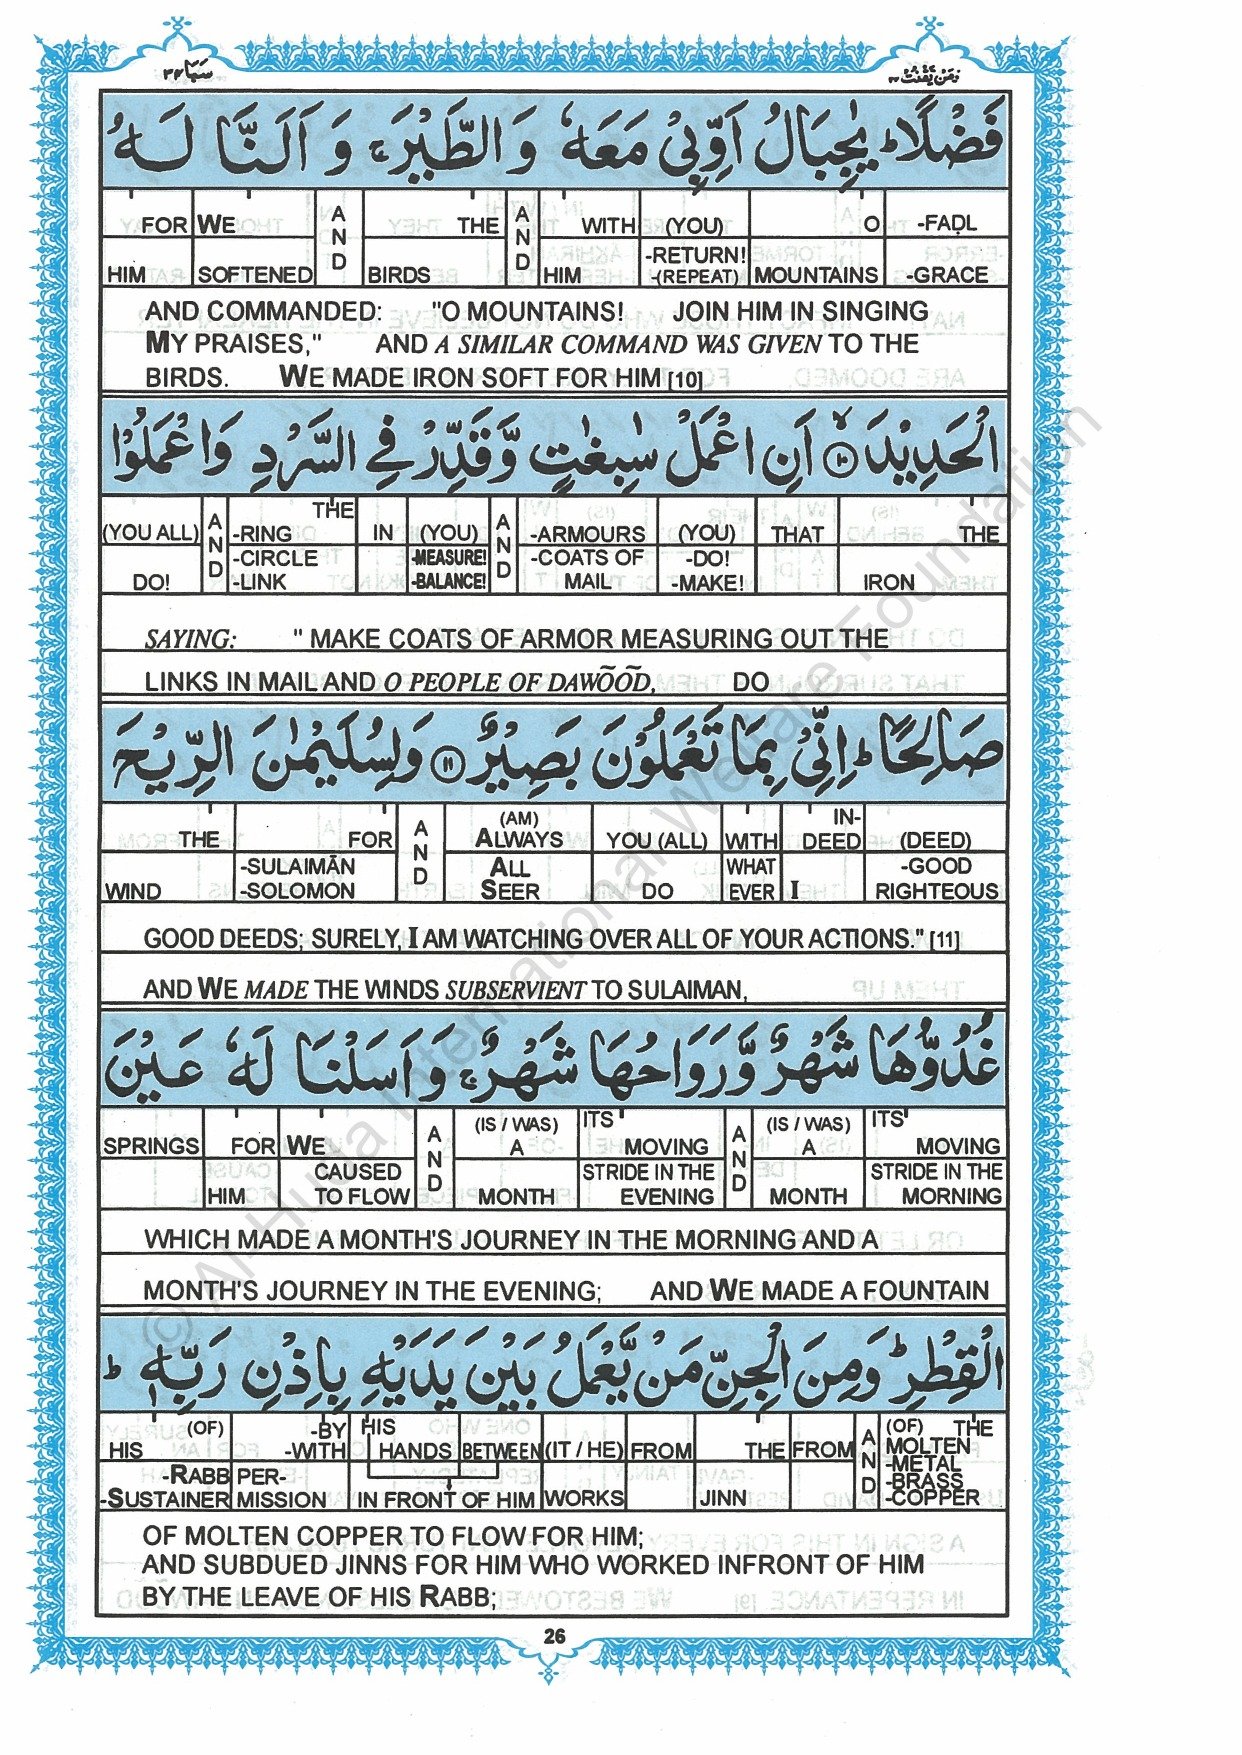 سَبَا ٣٤
وَمَنْ يَّقْنُتْ ٢٢
فَضْلًا ؕ يٰجِبَالُ اَوِّبِىْ مَعَهٗ وَالطَّيْرَ ۚ وَ اَلَنَّا لَهُ
FOR WE AND THE AND WITH (YOU) O -FAḌL
HIM SOFTENED BIRDS HIM -RETURN! -(REPEAT) MOUNTAINS -GRACE
AND COMMANDED: "O MOUNTAINS! JOIN HIM IN SINGING
MY PRAISES," AND A SIMILAR COMMAND WAS GIVEN TO THE
BIRDS. WE MADE IRON SOFT FOR HIM [10]
الْحَدِيْدَ ۙ ١٠ اَنِ اعْمَلْ سٰبِغٰتٍ وَّقَدِّرْ فِى السَّرْدِ وَاعْمَلُوْا
(YOU ALL) AND THE -RING IN (YOU) AND -ARMOURS (YOU) THAT THE
DO! -CIRCLE -LINK -MEASURE! -BALANCE! -COATS OF MAIL -DO! -MAKE! IRON
SAYING: " MAKE COATS OF ARMOR MEASURING OUT THE
LINKS IN MAIL AND O PEOPLE OF DAWÕÕD, DO
صَالِحًا ؕ اِنِّىْ بِمَا تَعْمَلُوْنَ بَصِيْرٌ ١١ وَلِسُلَيْمٰنَ الرِّيْحَ
THE FOR AND (AM) ALWAYS YOU (ALL) WITH IN-DEED (DEED)
WIND -SULAIMĀN -SOLOMON ALL SEER DO WHAT EVER I -GOOD RIGHTEOUS
GOOD DEEDS; SURELY, I AM WATCHING OVER ALL OF YOUR ACTIONS." [11]
AND WE MADE THE WINDS SUBSERVIENT TO SULAIMAN,
غُدُوُّهَا شَهْرٌ وَّرَوَاحُهَا شَهْرٌ ۚ وَاَسَلْنَا لَهٗ عَيْنَ
SPRINGS FOR WE AND (IS / WAS) A ITS MOVING AND (IS / WAS) A ITS MOVING
HIM CAUSED TO FLOW MONTH STRIDE IN THE EVENING MONTH STRIDE IN THE MORNING
WHICH MADE A MONTH'S JOURNEY IN THE MORNING AND A
MONTH'S JOURNEY IN THE EVENING; AND WE MADE A FOUNTAIN
الْقِطْرِ ؕ وَمِنَ الْجِنِّ مَنْ يَّعْمَلُ بَيْنَ يَدَيْهِ بِاِذْنِ رَبِّهٖ ؕ
HIS (OF) -BY -WITH HIS HANDS BETWEEN (IT / HE) FROM THE FROM AND (OF) THE MOLTEN
-RABB -SUSTAINER PER-MISSION IN FRONT OF HIM WORKS JINN -METAL -BRASS -COPPER
OF MOLTEN COPPER TO FLOW FOR HIM;
AND SUBDUED JINNS FOR HIM WHO WORKED INFRONT OF HIM
BY THE LEAVE OF HIS RABB;
26
© Al-Huda International Welfare Foundation